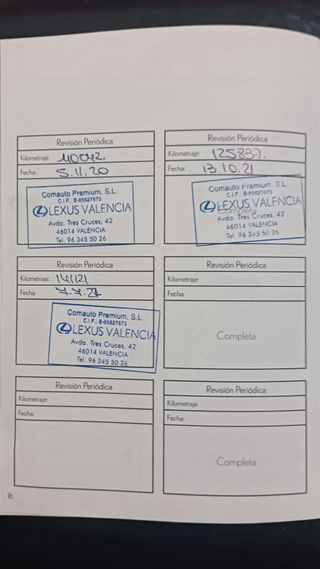 Revisión Periódica
Kilometraje: 110042.
Fecha: 5.11.20
Comauto Premium, S.L.
C.I.F.: B-85827673
LEXUS VALENCIA
Avda. Tres Cruces, 42
46014 VALENCIA
Tel. 96 345 50 26
Revisión Periódica
Kilometraje: 125837.
Fecha: 13.10.21
Comauto Premium, S.L.
C.I.F.: B-85827673
LEXUS VALENCIA
Completa
Avda. Tres Cruces, 42
46014 VALENCIA
Tel. 96 345 50 26
Revisión Periódica
Kilometraje: 141121
Fecha:
Comauto Premium, S.L.
C.I.F.: B-85827673
LEXUS VALENCIA
Avda. Tres Cruces, 42
46014 VALENCIA
Tel. 96 345 50 26
Revisión Periódica
Kilometraje:
Fecha:
Completa
Revisión Periódica
Kilometraje:
Fecha:
Revisión Periódica
Kilometraje:
Fecha:
Completa
16